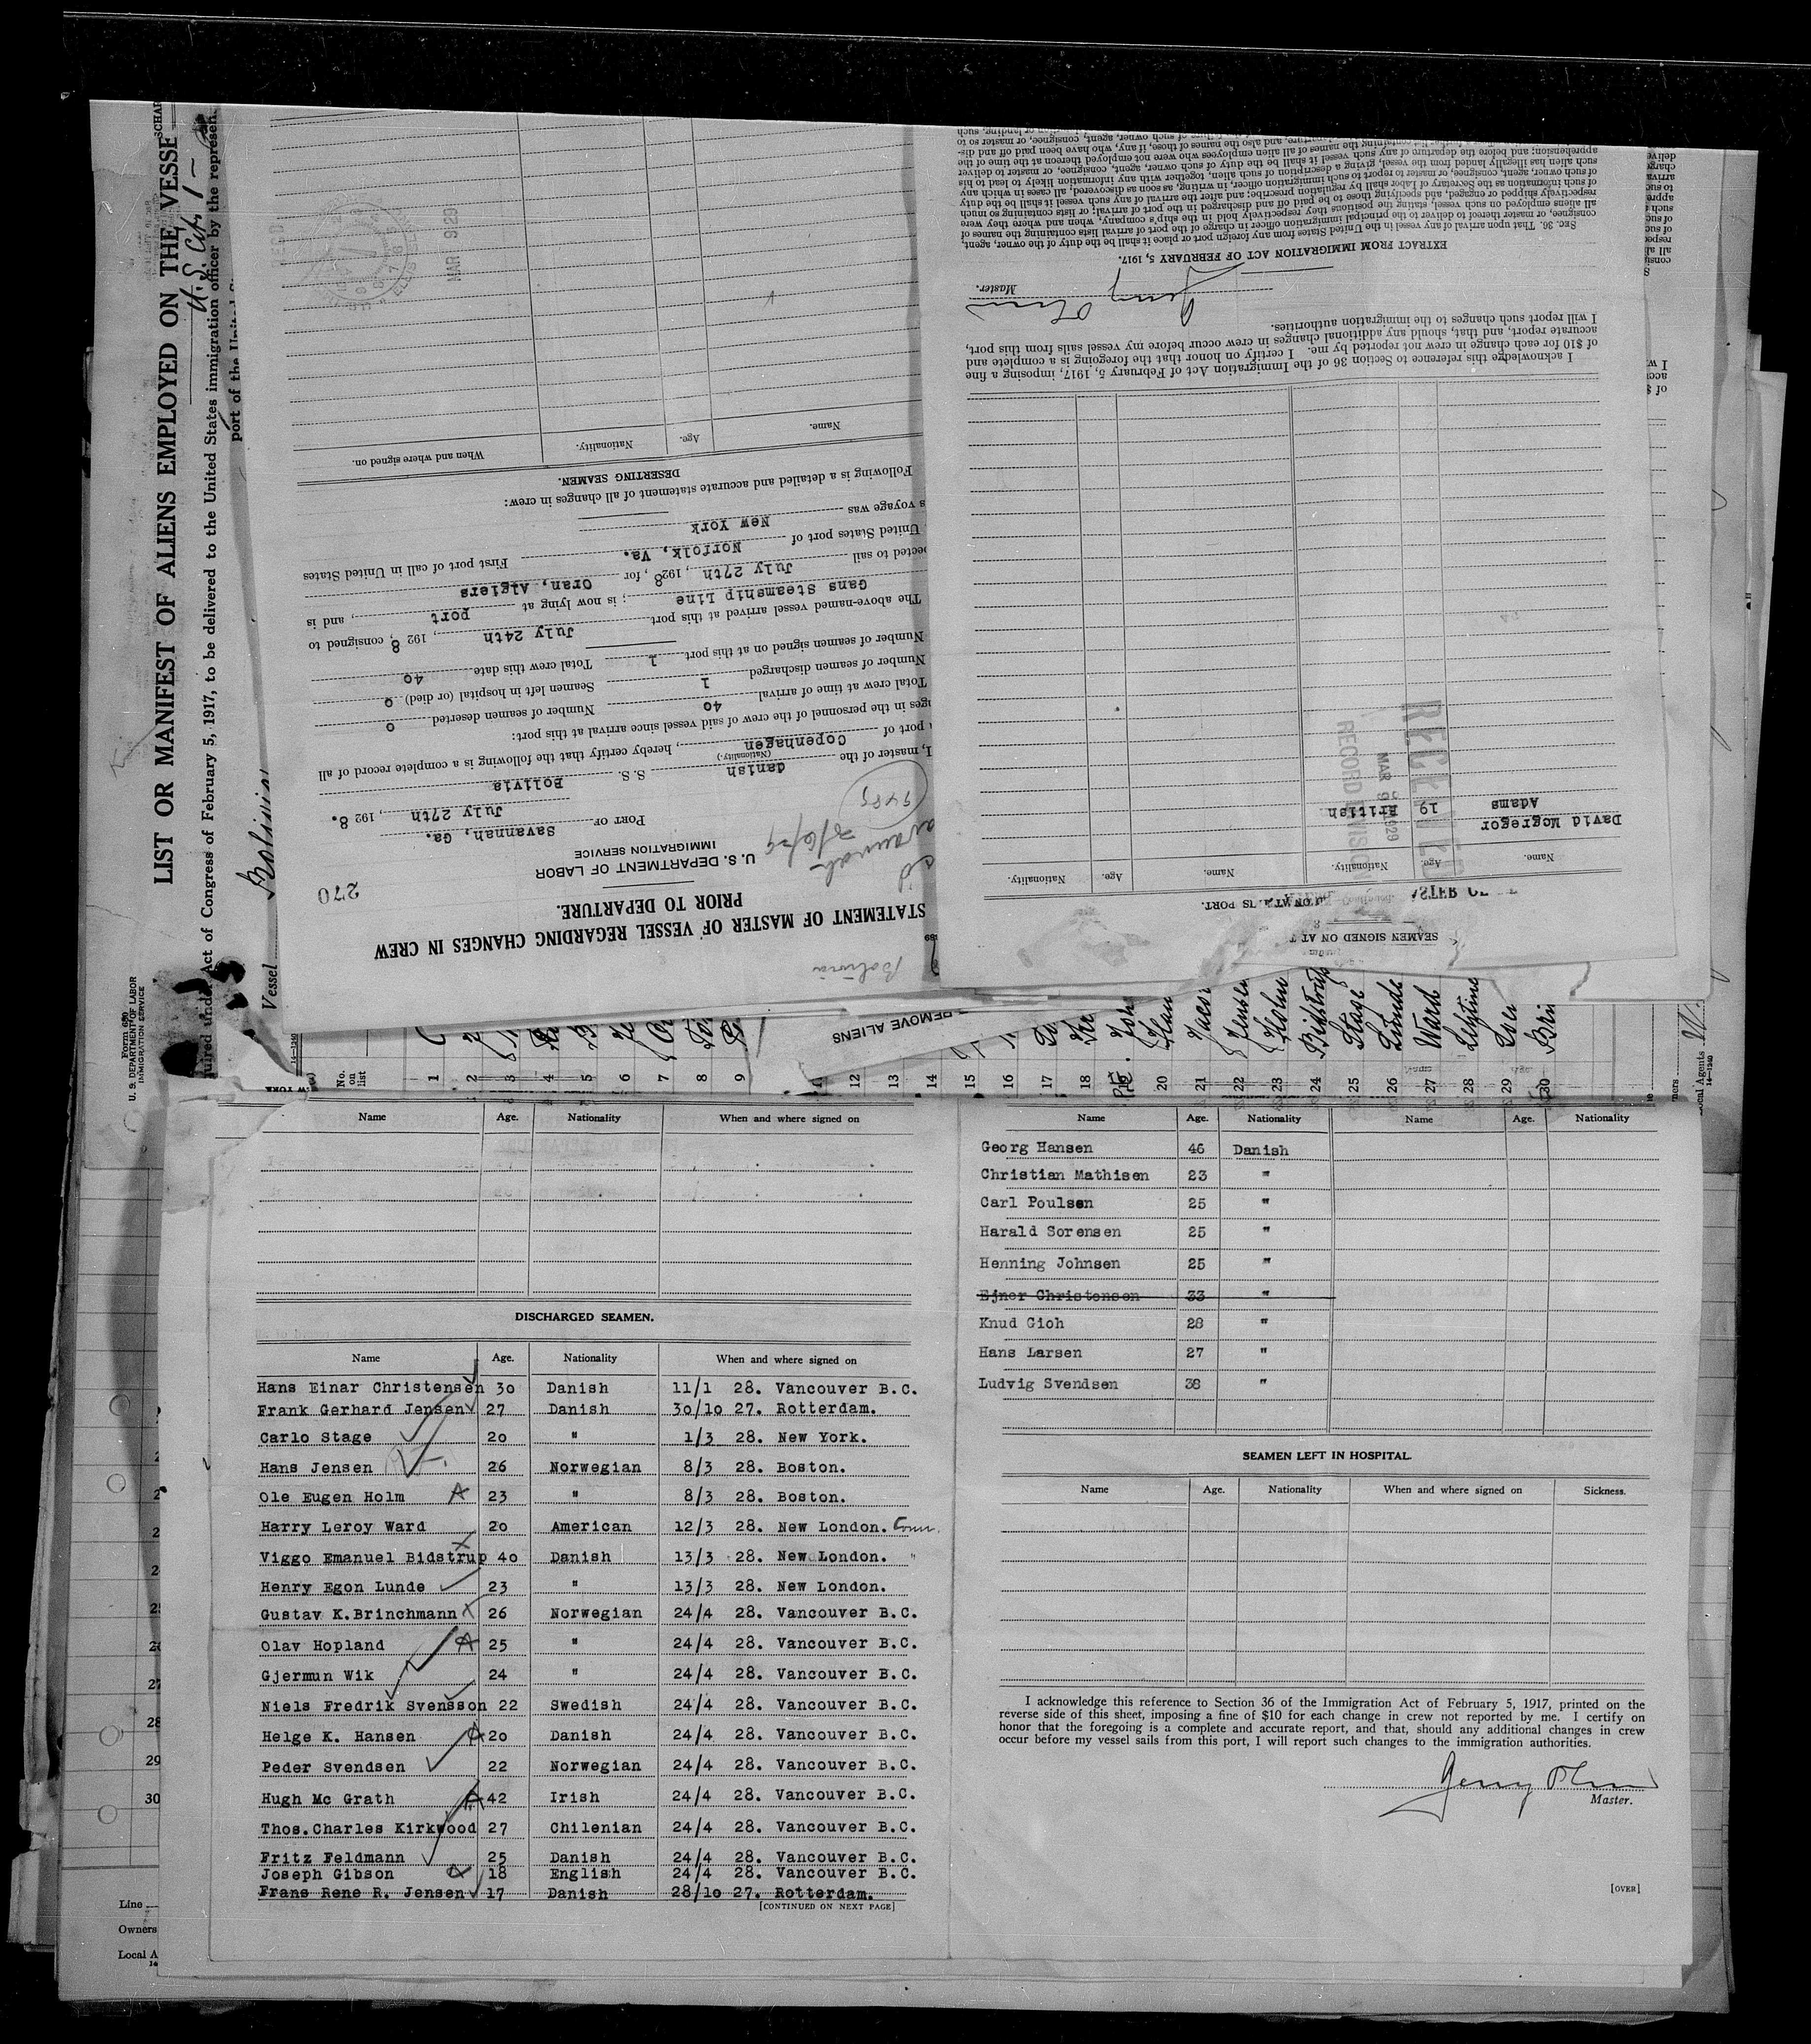 LIST OR MANIFEST OF ALIENS EMPLOYED ON THE VESSE
U.S. Cit. 1 –
Act of Congress of February 5, 1917, to be delivered to the United States immigration officer by the represen
port of the United
Vessel
Form 680
U. S. DEPARTMENT OF LABOR
IMMIGRATION SERVICE
STATEMENT OF MASTER OF VESSEL REGARDING CHANGES IN CREW
PRIOR TO DEPARTURE.
270
U. S. DEPARTMENT OF LABOR
IMMIGRATION SERVICE
PORT OF Savannah, Ga.
July 27th, 1928.
I, master of the danish S. S. Bolivia
(Nationality.)
port of Copenhagen, hereby certify that the following is a complete record of all
ges in the personnel of the crew of said vessel since arrival at this port:
Total crew at time of arrival 40 Number of seamen deserted 0
Number of seamen discharged 1 Seamen left in hospital (or died) 0
Number of seamen signed on at this port 1 Total crew this date 40
The above-named vessel arrived at this port July 24th, 1928, consigned to
Gans Steamship Line; is now lying at port, and is
ected to sail July 27th, 1928, for Oran, Algiers
United States port of Norfolk, Va. First port of call in United States
s voyage was New York
Following is a detailed and accurate statement of all changes in crew:
DESERTING SEAMEN.
Name. Age. Nationality. When and where signed on.
MAR 9 1929
SEAMEN SIGNED ON AT T
Name. Age. Nationality. Name. Age. Nationality.
David Mcgregor
Adams 19 British
RECEIVED
MAR 9 1929
RECORD DIVISION
I acknowledge this reference to Section 36 of the Immigration Act of February 5, 1917, imposing a fine
of $10 for each change in crew not reported by me. I certify on honor that the foregoing is a complete and
accurate report, and that, should any additional changes in crew occur before my vessel sails from this port,
I will report such changes to the immigration authorities.
Master.
EXTRACT FROM IMMIGRATION ACT OF FEBRUARY 5, 1917.
SEC. 36. That upon arrival of any vessel in the United States from any foreign port or place it shall be the duty of the owner, agent,
consignee, or master thereof to deliver to the principal immigration officer in charge of the port of arrival lists containing the names of
all aliens employed on such vessel, stating the positions they respectively hold in the ship's company, when and where they were
respectively shipped or engaged, and specifying those to be paid off and discharged in the port of arrival; or lists containing so much
of such information as the Secretary of Labor shall by regulation prescribe; and after the arrival of any such vessel it shall be the duty
of such owner, agent, consignee, or master to report to such immigration officer, in writing, as soon as discovered, all cases in which any
such alien has illegally landed from the vessel, giving a description of such alien, together with any information likely to lead to his
apprehension; and before the departure of any such vessel it shall be the duty of such owner, agent, consignee, or master to deliver
REMOVE ALIENS
No. on list
1 2 3 4 5 6 7 8 9
12 13 14 15 16 17 18 20 21 22 23 24 25 26 27 28 29 30
Holm
Bidstrup
Stage
Lunde
Ward
Name Age. Nationality When and where signed on
DISCHARGED SEAMEN.
Name Age. Nationality When and where signed on
Hans Einar Christensen 30 Danish 11/1 28. Vancouver B.C.
Frank Gerhard Jensen 27 Danish 30/10 27. Rotterdam.
Carlo Stage 20 " 1/3 28. New York.
Hans Jensen 26 Norwegian 8/3 28. Boston.
Ole Eugen Holm 23 " 8/3 28. Boston.
Harry Leroy Ward 20 American 12/3 28. New London. Conn.
Viggo Emanuel Bidstrup 40 Danish 13/3 28. New London. "
Henry Egon Lunde 23 " 13/3 28. New London.
Gustav K.Brinchmann 26 Norwegian 24/4 28. Vancouver B.C.
Olav Hopland 25 " 24/4 28. Vancouver B.C.
Gjermun Wik 24 " 24/4 28. Vancouver B.C.
Niels Fredrik Svensson 22 Swedish 24/4 28. Vancouver B.C.
Helge K. Hansen 20 Danish 24/4 28. Vancouver B.C.
Peder Svendsen 22 Norwegian 24/4 28. Vancouver B.C.
Hugh Mc Grath 42 Irish 24/4 28. Vancouver B.C.
Thos.Charles Kirkwood 27 Chilenian 24/4 28. Vancouver B.C.
Fritz Feldmann 25 Danish 24/4 28. Vancouver B.C.
Joseph Gibson 18 English 24/4 28. Vancouver B.C.
Frans Rene R. Jensen 17 Danish 28/10 27. Rotterdam.
[CONTINUED ON NEXT PAGE]
Name Age. Nationality Name Age. Nationality
Georg Hansen 46 Danish
Christian Mathisen 23 "
Carl Poulsen 25 "
Harald Sorensen 25 "
Henning Johnsen 25 "
Ejner Christensen 33 "
Knud Gioh 28 "
Hans Larsen 27 "
Ludvig Svendsen 38 "
SEAMEN LEFT IN HOSPITAL.
Name Age. Nationality When and where signed on Sickness.
I acknowledge this reference to Section 36 of the Immigration Act of February 5, 1917, printed on the
reverse side of this sheet, imposing a fine of $10 for each change in crew not reported by me. I certify on
honor that the foregoing is a complete and accurate report, and that, should any additional changes in crew
occur before my vessel sails from this port, I will report such changes to the immigration authorities.
Master.
[OVER]
28
29
30
Line
Owners
Local A